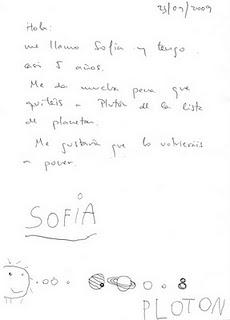 23/07/2009
Hola:
me llamo Sofía y tengo
casi 5 años.
Me da mucha pena que
quitéis a Plutón de la lista
de planetas.
Me gustaría que lo volvierais
a poner.
SOFÍA
PLOTON